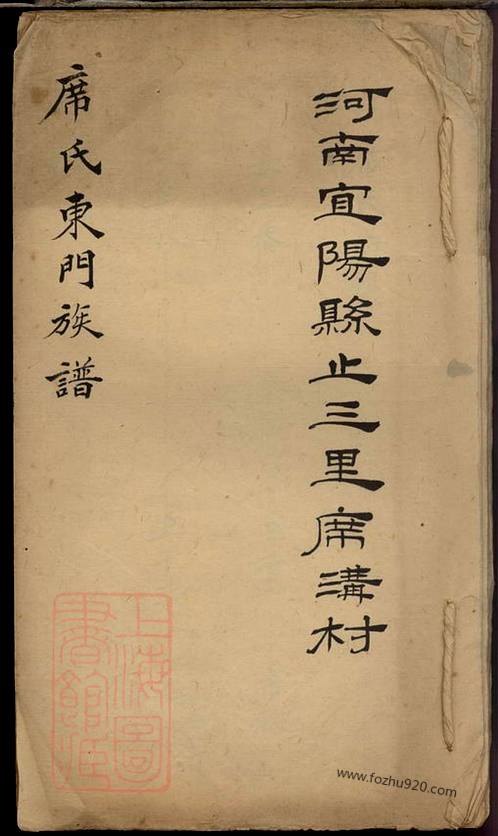 河南宜陽縣止三里席溝村
席氏東門族譜
上海圖
書館藏
www.fozhu920.com